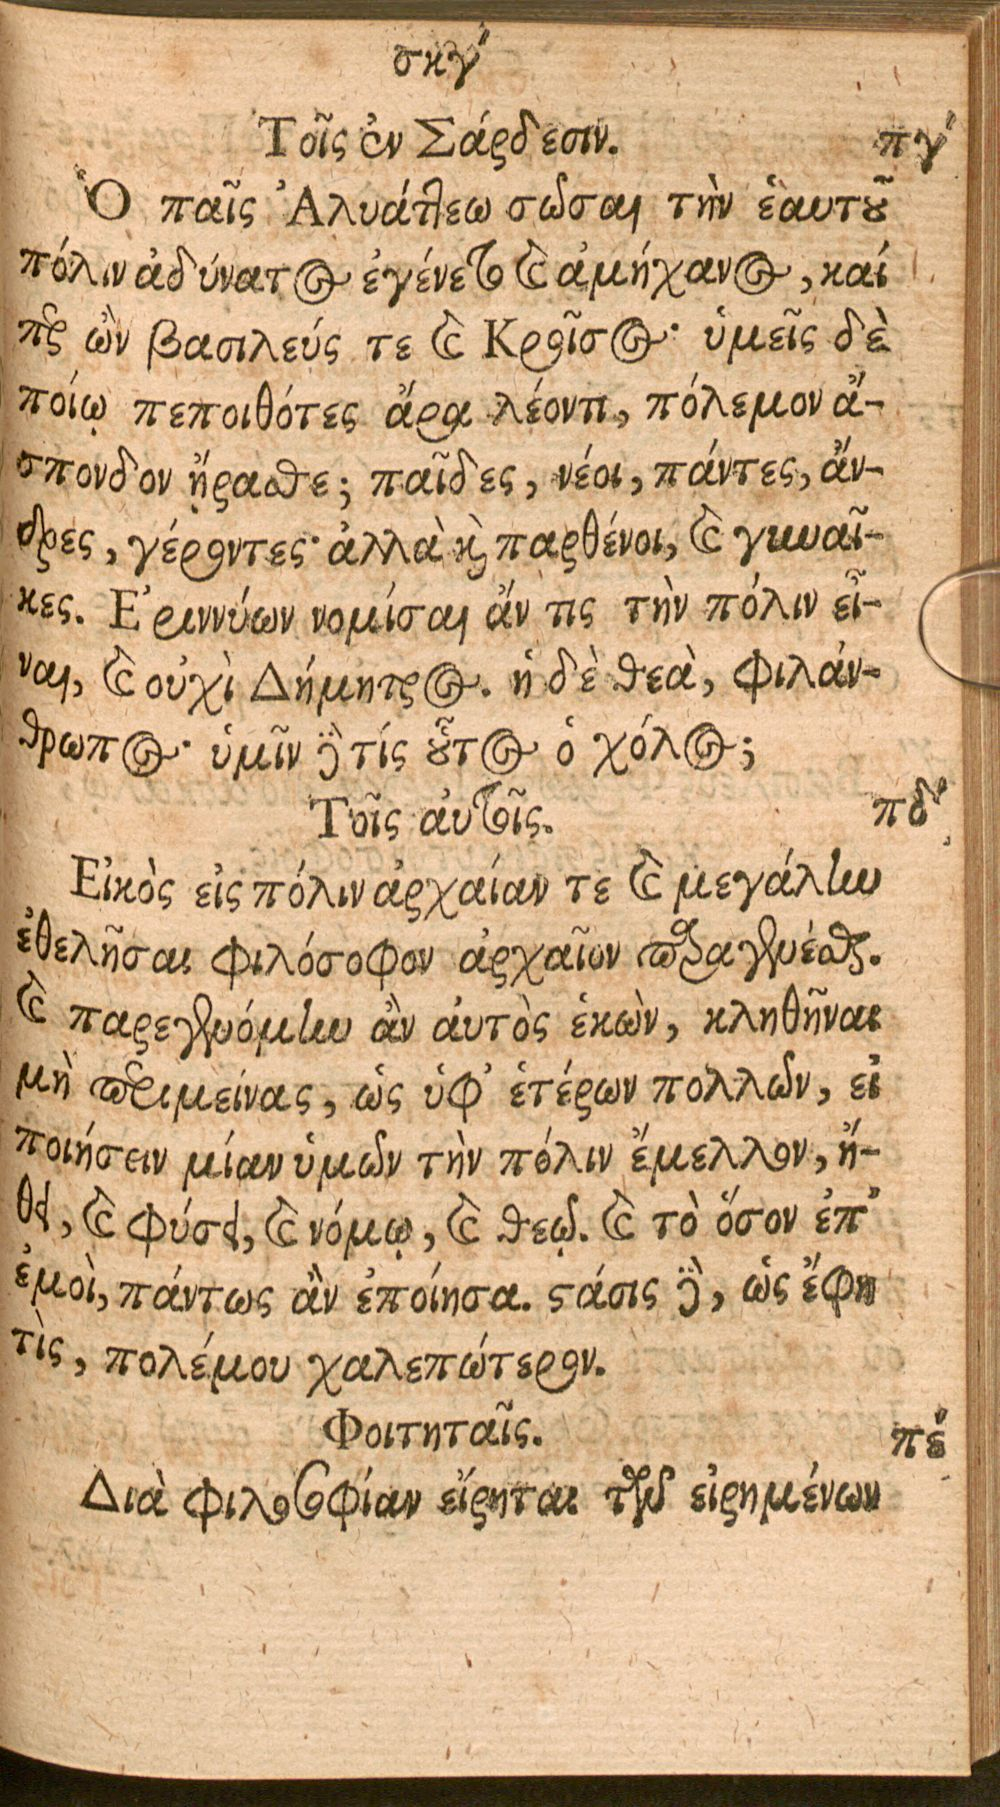 σκγ´
Τοῖς ἐν Σάρδεσιν. πγ´
Ὁ παῖς Ἀλυάττεω σῶσαι τὴν ἑαυτοῦ
πόλιν ἀδύνατος ἐγένετο καὶ ἀμήχανος, καί
περ ὢν βασιλεύς τε καὶ Κροῖσος· ὑμεῖς δὲ
ποίῳ πεποιθότες ἄρα λέοντι, πόλεμον ἄ-
σπονδον ᾔρασθε; παῖδες, νέοι, πάντες, ἄν-
δρες, γέροντες· ἀλλὰ καὶ παρθένοι, καὶ γυναῖ-
κες. Ἐριννύων νομίσαι ἄν τις τὴν πόλιν εἶ-
ναι, καὶ οὐχὶ Δήμητρος. ἡ δὲ θεὰ, φιλάν-
θρωπος· ὑμῖν δὲ τίς οὗτος ὁ χόλος;
Τοῖς αὐτοῖς. πδ´
Εἰκὸς εἰς πόλιν ἀρχαίαν τε καὶ μεγάλην
ἐθελῆσαι φιλόσοφον ἀρχαῖον παραγενέσθαι.
καὶ παρεγενόμην ἂν αὐτὸς ἑκὼν, κληθῆναι
μὴ περιμείνας, ὡς ὑφ᾽ ἑτέρων πολλῶν, εἰ
ποιήσειν μίαν ὑμῶν τὴν πόλιν ἔμελλον, ἤ-
θει, καὶ φύσει, καὶ νόμῳ, καὶ θεῷ. καὶ τὸ ὅσον ἐπ᾽
ἐμοὶ, πάντως ἂν ἐποίησα. στάσις δὲ, ὡς ἔφη
τὶς, πολέμου χαλεπώτερον.
Φοιτηταῖς. πέ
Διὰ φιλοσοφίαν εἴρηται τῶν εἰρημένων